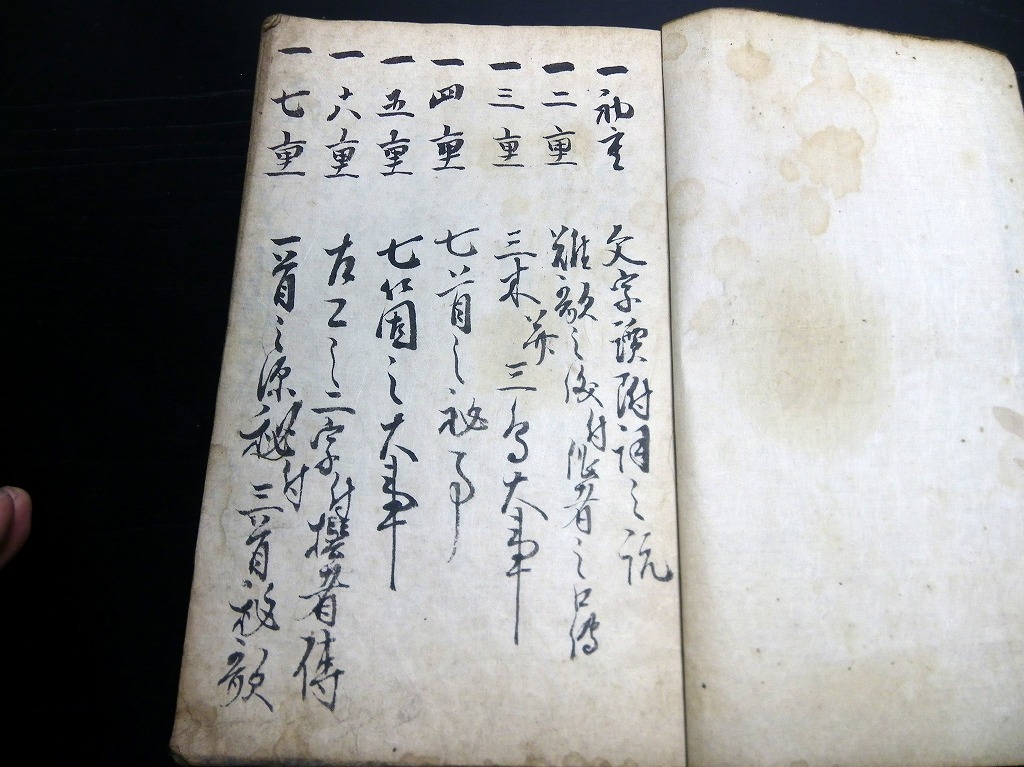 一初重 文字讀附詞之説
一二重 難歌之儀付作者之口傳
一三重 三木并三鳥大事
一四重 七首之秘事
一五重 七仁因之大事
一六重 古今之二字付撰者傳
一七重 一首之深秘付三首秘歌